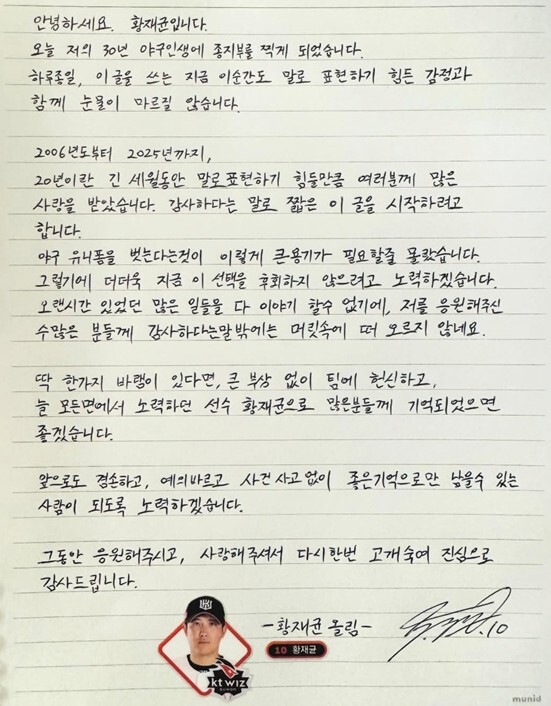 안녕하세요. 황재균입니다.
오늘 저의 30년 야구인생에 종지부를 찍게 되었습니다.
하루종일, 이 글을 쓰는 지금 이순간도 말로 표현하기 힘든 감정과
함께 눈물이 마르질 않습니다.
2006년도부터 2025년까지,
20년이란 긴 세월동안 말로표현하기 힘들만큼 여러분께 많은
사랑을 받았습니다. 감사하다는 말로 짧은 이 글을 시작하려고
합니다.
야구 유니폼을 벗는다는것이 이렇게 큰용기가 필요할줄 몰랐습니다.
그렇기에 더더욱 지금 이 선택을 후회하지 않으려고 노력하겠습니다.
오랜시간 있었던 많은 일들을 다 이야기 할수 없기에, 저를 응원해주신
수많은 분들께 감사하다는말 밖에는 머릿속에 떠 오르지 않네요.
딱 한가지 바램이 있다면, 큰 부상 없이 팀에 헌신하고,
늘 모든면에서 노력하던 선수 황재균으로 많은분들께 기억되었으면
좋겠습니다.
앞으로도 겸손하고, 예의바르고 사건사고없이 좋은기억으로만 남을수 있는
사람이 되도록 노력하겠습니다.
그동안 응원해주시고, 사랑해주셔서 다시한번 고개숙여 진심으로
감사드립니다.
-황재균 올림-
10 황재균
kt wiz
.10
munid